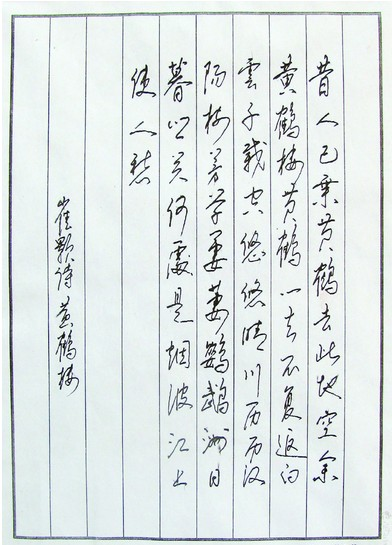 昔人已乘黄鹤去此地空余
黄鹤楼黄鹤一去不复返白
雲千载空悠悠晴川历历汉
阳树芳草萋萋鹦鹉洲日
暮乡关何處是烟波江上
使人愁
崔颢诗黄鹤楼